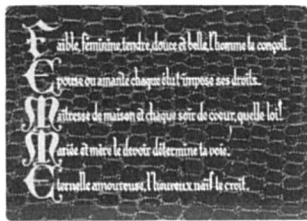 Faible, féminine, tendre, douce et belle, l'homme te conçoit.
Epouse ou amante chaque élu t'impose ses droits.
Maîtresse de maison et chaque soir de coeur, quelle loi!
Mariée et mère le devoir détermine ta voie.
Eternelle amoureuse, l'heureux naïf te croit.